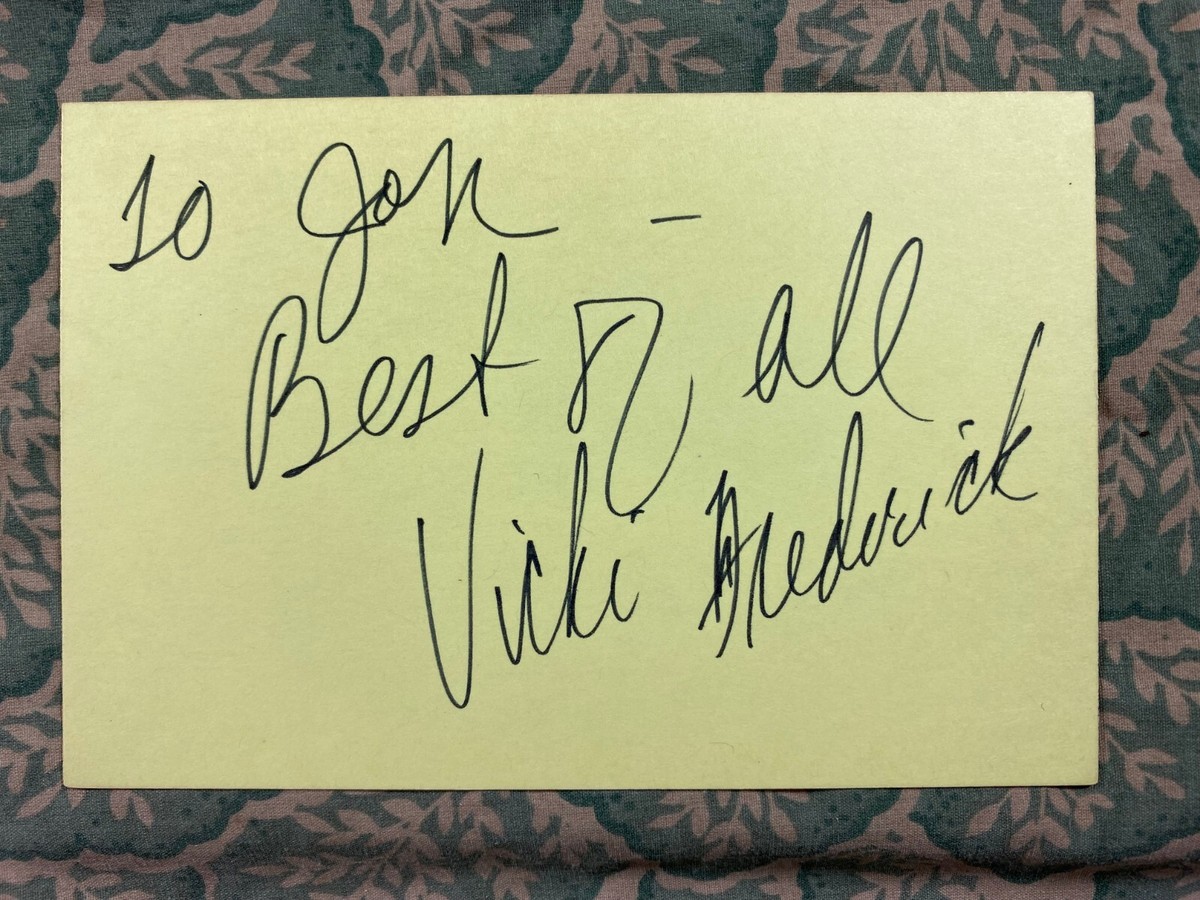 To Jon -
Best of all
Vicki Frederick